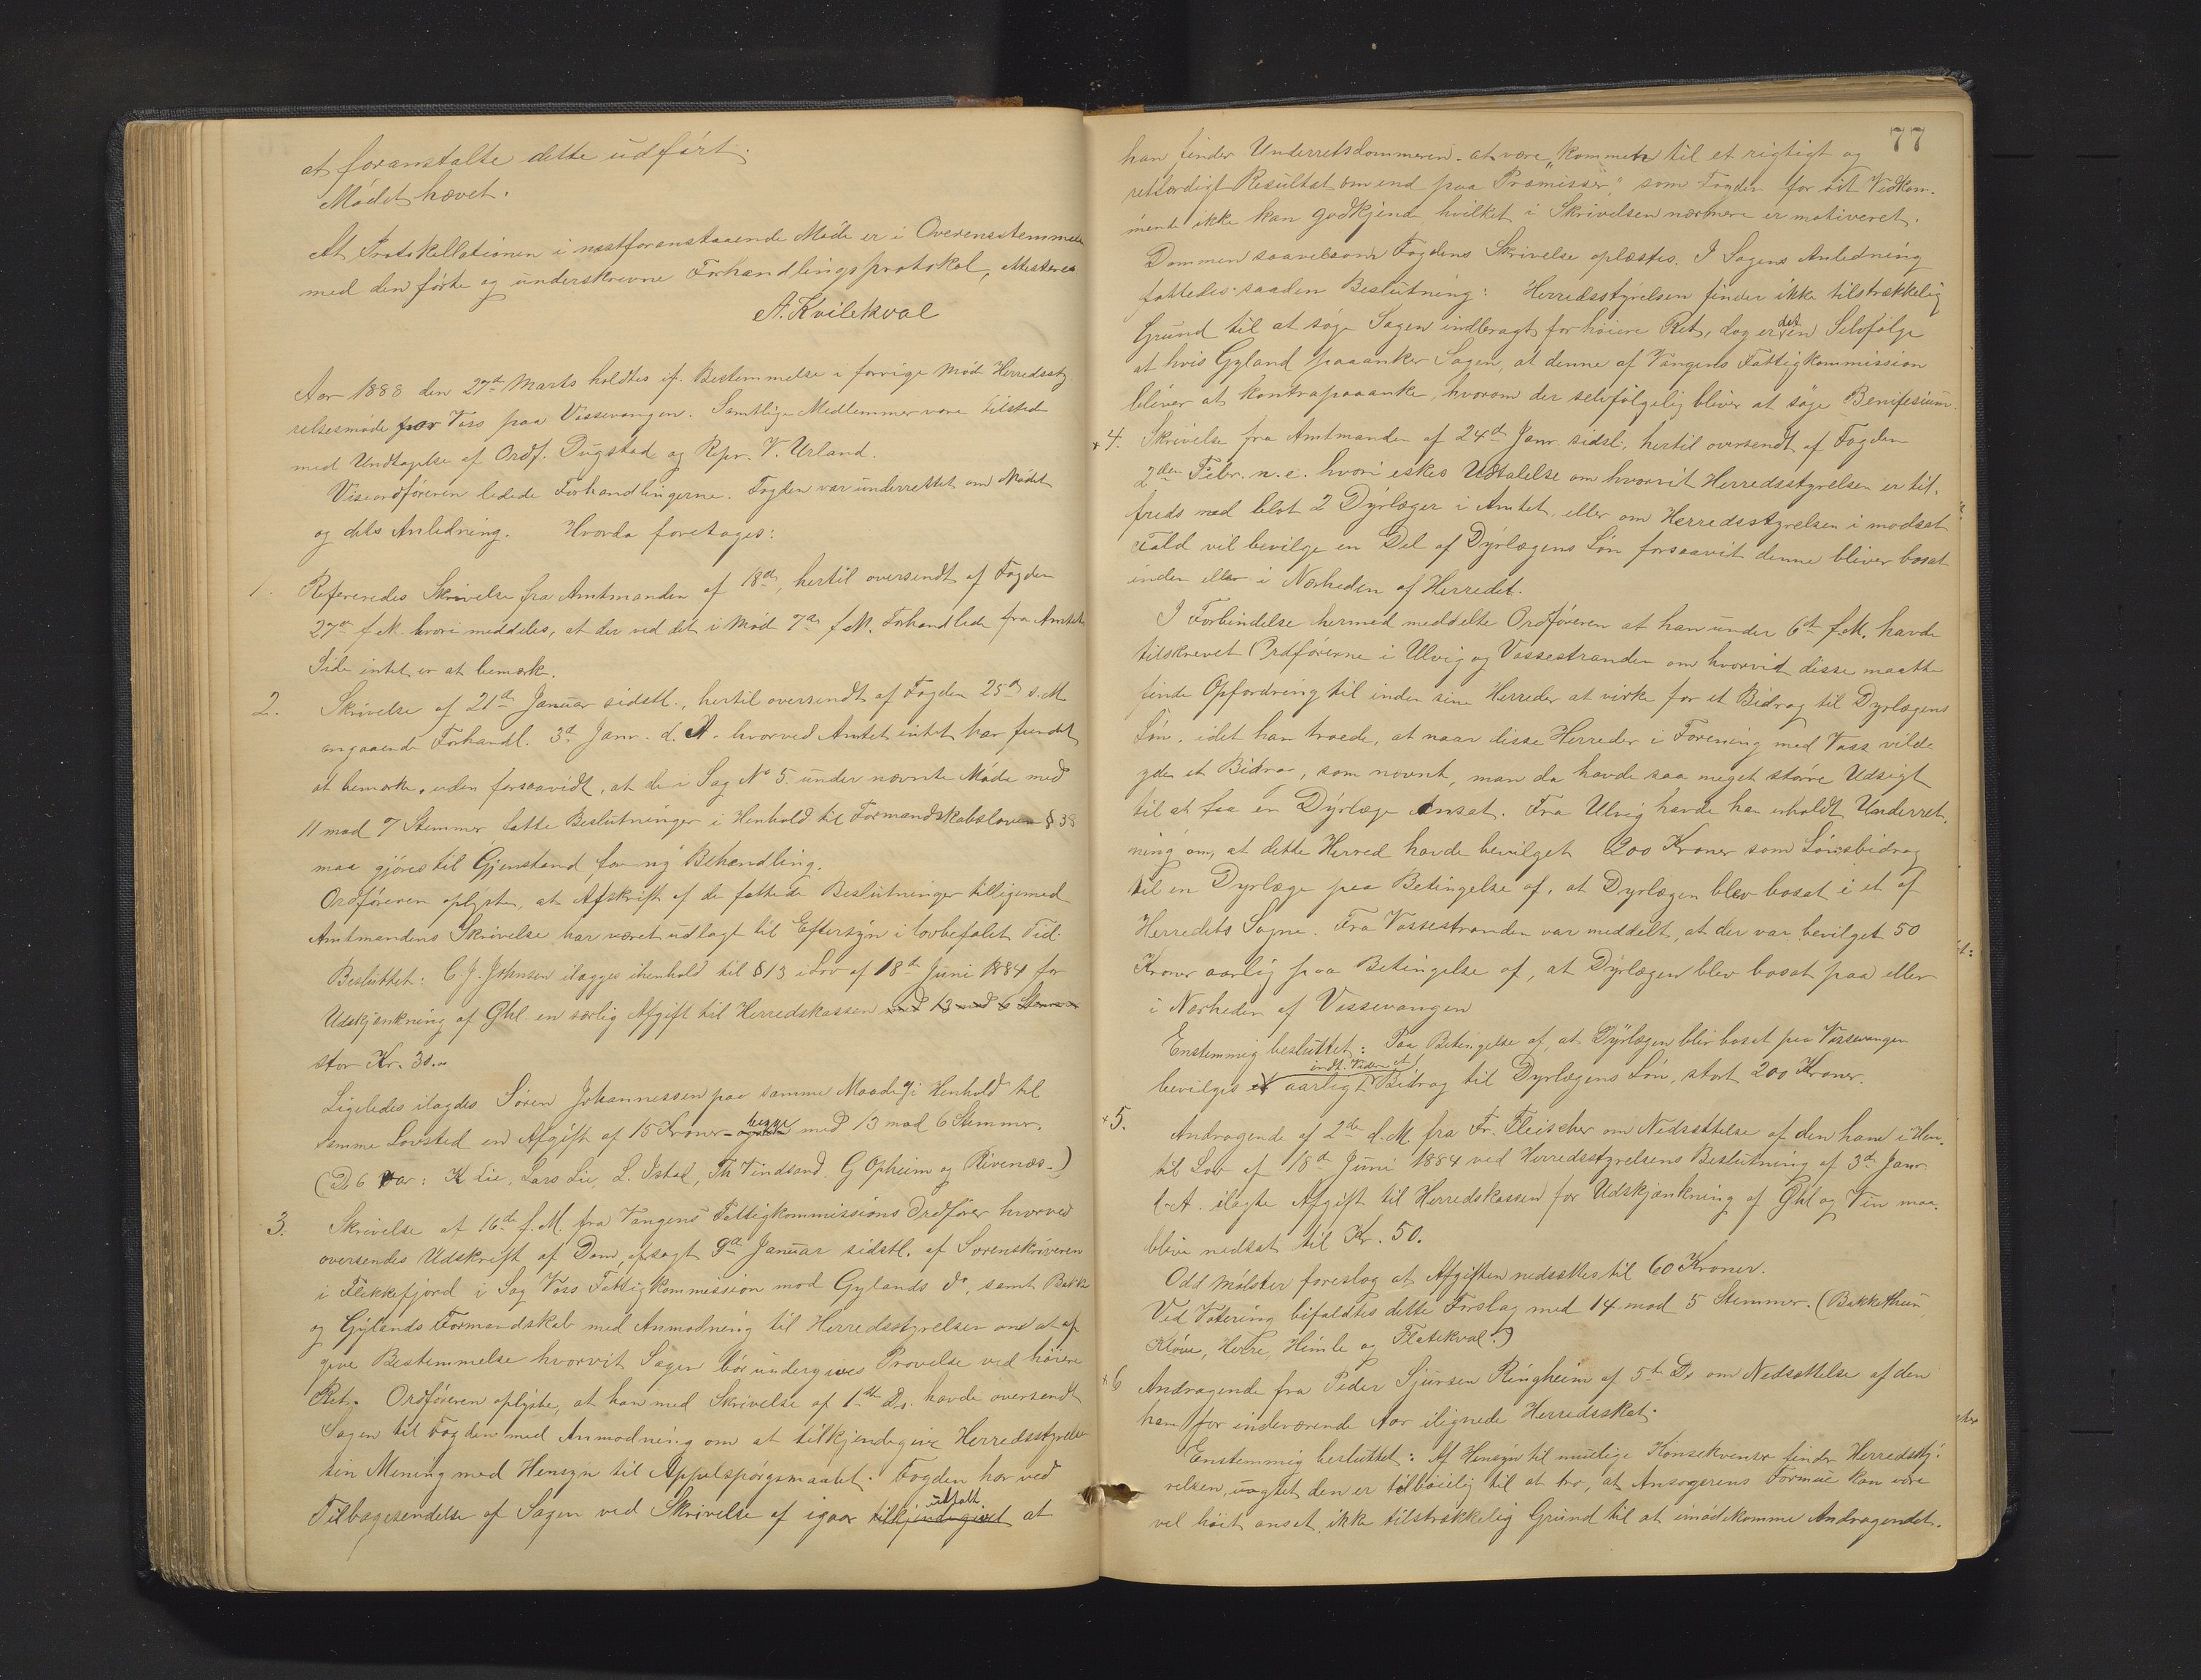 at foranstalte dette udført.
Mødet hævet.
At Protokollationen i næstforanstaaende Møde er i Overensstemmelse
med den førte og underskrevne Forhandlingsprotokol, attesteres
A. Kvilekval
Aar 1888 den 27de Marts holdtes if. Bestemmelse i forrige Møde Herredssty
relsesmøde for Voss paa Vossevangen. Samtlige Medlemmer vare tilstede
med Undtagelse af Ordf. Dugstad og Repr. V. Urland.
Viseordføreren ledede Forhandlingerne. Fogden var underrettet om Mødet
og dets Anledning. Hvorda foretages:
1. Refereredes Skrivelse fra Amtmanden af 18de, hertil oversendt af Fogden
27de f.M. hvori meddeles, at der ved det i Møde 7de f.M. Forhandlede fra Amtets
Side intet er at bemærke.
2. Skrivelse af 21de Januar sidstl., hertil oversendt af Fogden 25de s.M
angaaende Forhandl. 3de Janr. d. A. hvorved Amtet intet har fundet
at bemærke, uden forsaavidt, at de i Sag No 5 under nævnte Møde med
11 mod 7 Stemmer fatte Beslutninger i Henhold til Formandskabsloven § 38
maa gjøres til Gjenstand for ny Behandling.
Ordføreren oplyste, at Afskrift af de fattede Beslutninger tilligemed
Amtmandens Skrivelse har været udlagt til Eftersyn i lovbefalet Tid.
Besluttet: C J. Johnsen ilægges ihenhold til § 13 i Lov af 18de Juni 1884 for
Udskjænkning af Øhl en særlig Afgift til Herredskassen med 13 mod 6 Stemmer
stor Kr. 30.
Ligeledes ilagdes Søren Johannessen paa samme Maade i Henhold til
samme Lovsted en Afgift af 15 Kroner begge med 13 mod 6 Stemmer.
(De 6 var: K Lie, Lars Lie, L. Istad, Th Tindsand. G Opheim og Rivenæs.)
3. Skrivelse af 16de f.M. fra Vangens Fattigkommissions Ordfører hvorved
oversendes Udskrift af Dom, afsagt 9de Januar sidstl. af Sorenskriveren
i Flekkefjord i Sag Voss Fattigkommission mod Gylands do, samt Bakke
og Gylands Formandskab med Anmodning til Herredsstyrelsen om at af
give Bestemmelse hvorvit Sagen bør undergives Prøvelse ved høiere
Ret. Ordføreren oplyste, at han med Skrivelse af 1ste Ds. havde oversendt
Sagen til Fogden med Anmodning om at tilkjendegive Herredsstyrelsen
sin Mening med Hensyn til Appelspørgsmaalet. Fogden har ved
Tilbagesendelse af Sagen ved Skrivelse af igaar tilkjendegivet udtalt at
77
han finder Underretsdommeren at være "kommen til et rigtigt og
retfærdigt Resultat om end paa Præmisser," som Fogden for sit Vedkom-
mende ikke kan godkjende hvilket i Skrivelsen nærmere er motiveret.
Dommen saavelsom Fogdens Skrivelse oplæstes. I Sagens Anledning
fattedes saaden Beslutning: Herredsstyrelsen finder ikke tilstrækkelig
Grund til at søge Sagen indbragt for høiere Ret, dog er det en Selvfølge
at hvis Gyland paaanker Sagen, at denne af Vangens Fattigkommission
bliver at kontrapaaanke, hvorom der selvfølgelig bliver at søge Benefisium.
4. Skrivelse fra Amtmanden af 24de Janr. sidstl., hertil oversendt af Fogden
2den Febr. n. e. hvori eskes Udtalelse om hvorvit Herredsstyrelsen er til-
freds med blot 2 Dyrlæger i Amtet, eller om Herredsstyrelsen i modsat
Fald vil bevilge en Del af Dyrlægens Løn forsaavit denne bliver bosat
inden eller i Nærheden af Herredet.
I Forbindelse hermed meddelte Ordføreren at han under 6te f.M. havde
tilskrevet Ordførerne i Ulvig og Vossestranden om hvorvid disse maatte
finde Opfordring til inden sine Herreder at virke for et Bidrag til Dyrlægens
Løn, idet han troede, at naar disse Herreder i Forening med Voss vilde
yde et Bidra, som nævnt, man da havde saa meget større Udsigt
til at faa en Dyrlæge ansat. Fra Ulvig havde han erholdt Underret-
ning om, at dette Herred havde bevilget 200 Kroner som Lønsbidrag
til en Dyrlæge paa Betingelse af, at Dyrlægen blev bosat i et af
Herredets Sogne. Fra Vossestranden var meddelt, at der var bevilget 50
Kroner aarlig paa Betingelse af, at Dyrlægen blev bosat paa eller
i Nærheden af Vossevangen
Enstemmig besluttet: Paa Betingelse af, at Dyrlægen blir bosat paa Vossevangen
bevilges et indt. Videre et aarligt Bidrag til Dyrlægens Løn, stort 200 Kroner.
5. Andragende af 2de d.M. fra Fr. Fleischer om Nedsættelse af den ham i Hen.
til Lov af 18de Juni 1884 ved Herredsstyrelsens Beslutning af 3de Janr.
d.A. ilagte Afgift til Herredskassen for Udskjænkning af Øhl og Vin maa
blive nedsat til Kr. 50.
Odd Mølster foreslog at Afgiften nedsættes til 60 Kroner.
Ved Votering bifaldtes dette Forslag med 14 mod 5 Stemmer. (Bakketheim,
Kløve, Herre, Himle og Flatekval.)
6 Andragende fra Peder Sjursen Ringheim af 5te Ds om Nedsættelse af den
ham for indeværende Aar ilignede Herredsskat.
Enstemmig besluttet: Af Hensyn til mulige Konsekvenser finder Herredssty-
relsen, uagtet den er tilbøielig til at tro, at Ansøgerens Formue kan være
vel høit anset, ikke tilstrækkelig Grund til at imødekomme Andragendet.